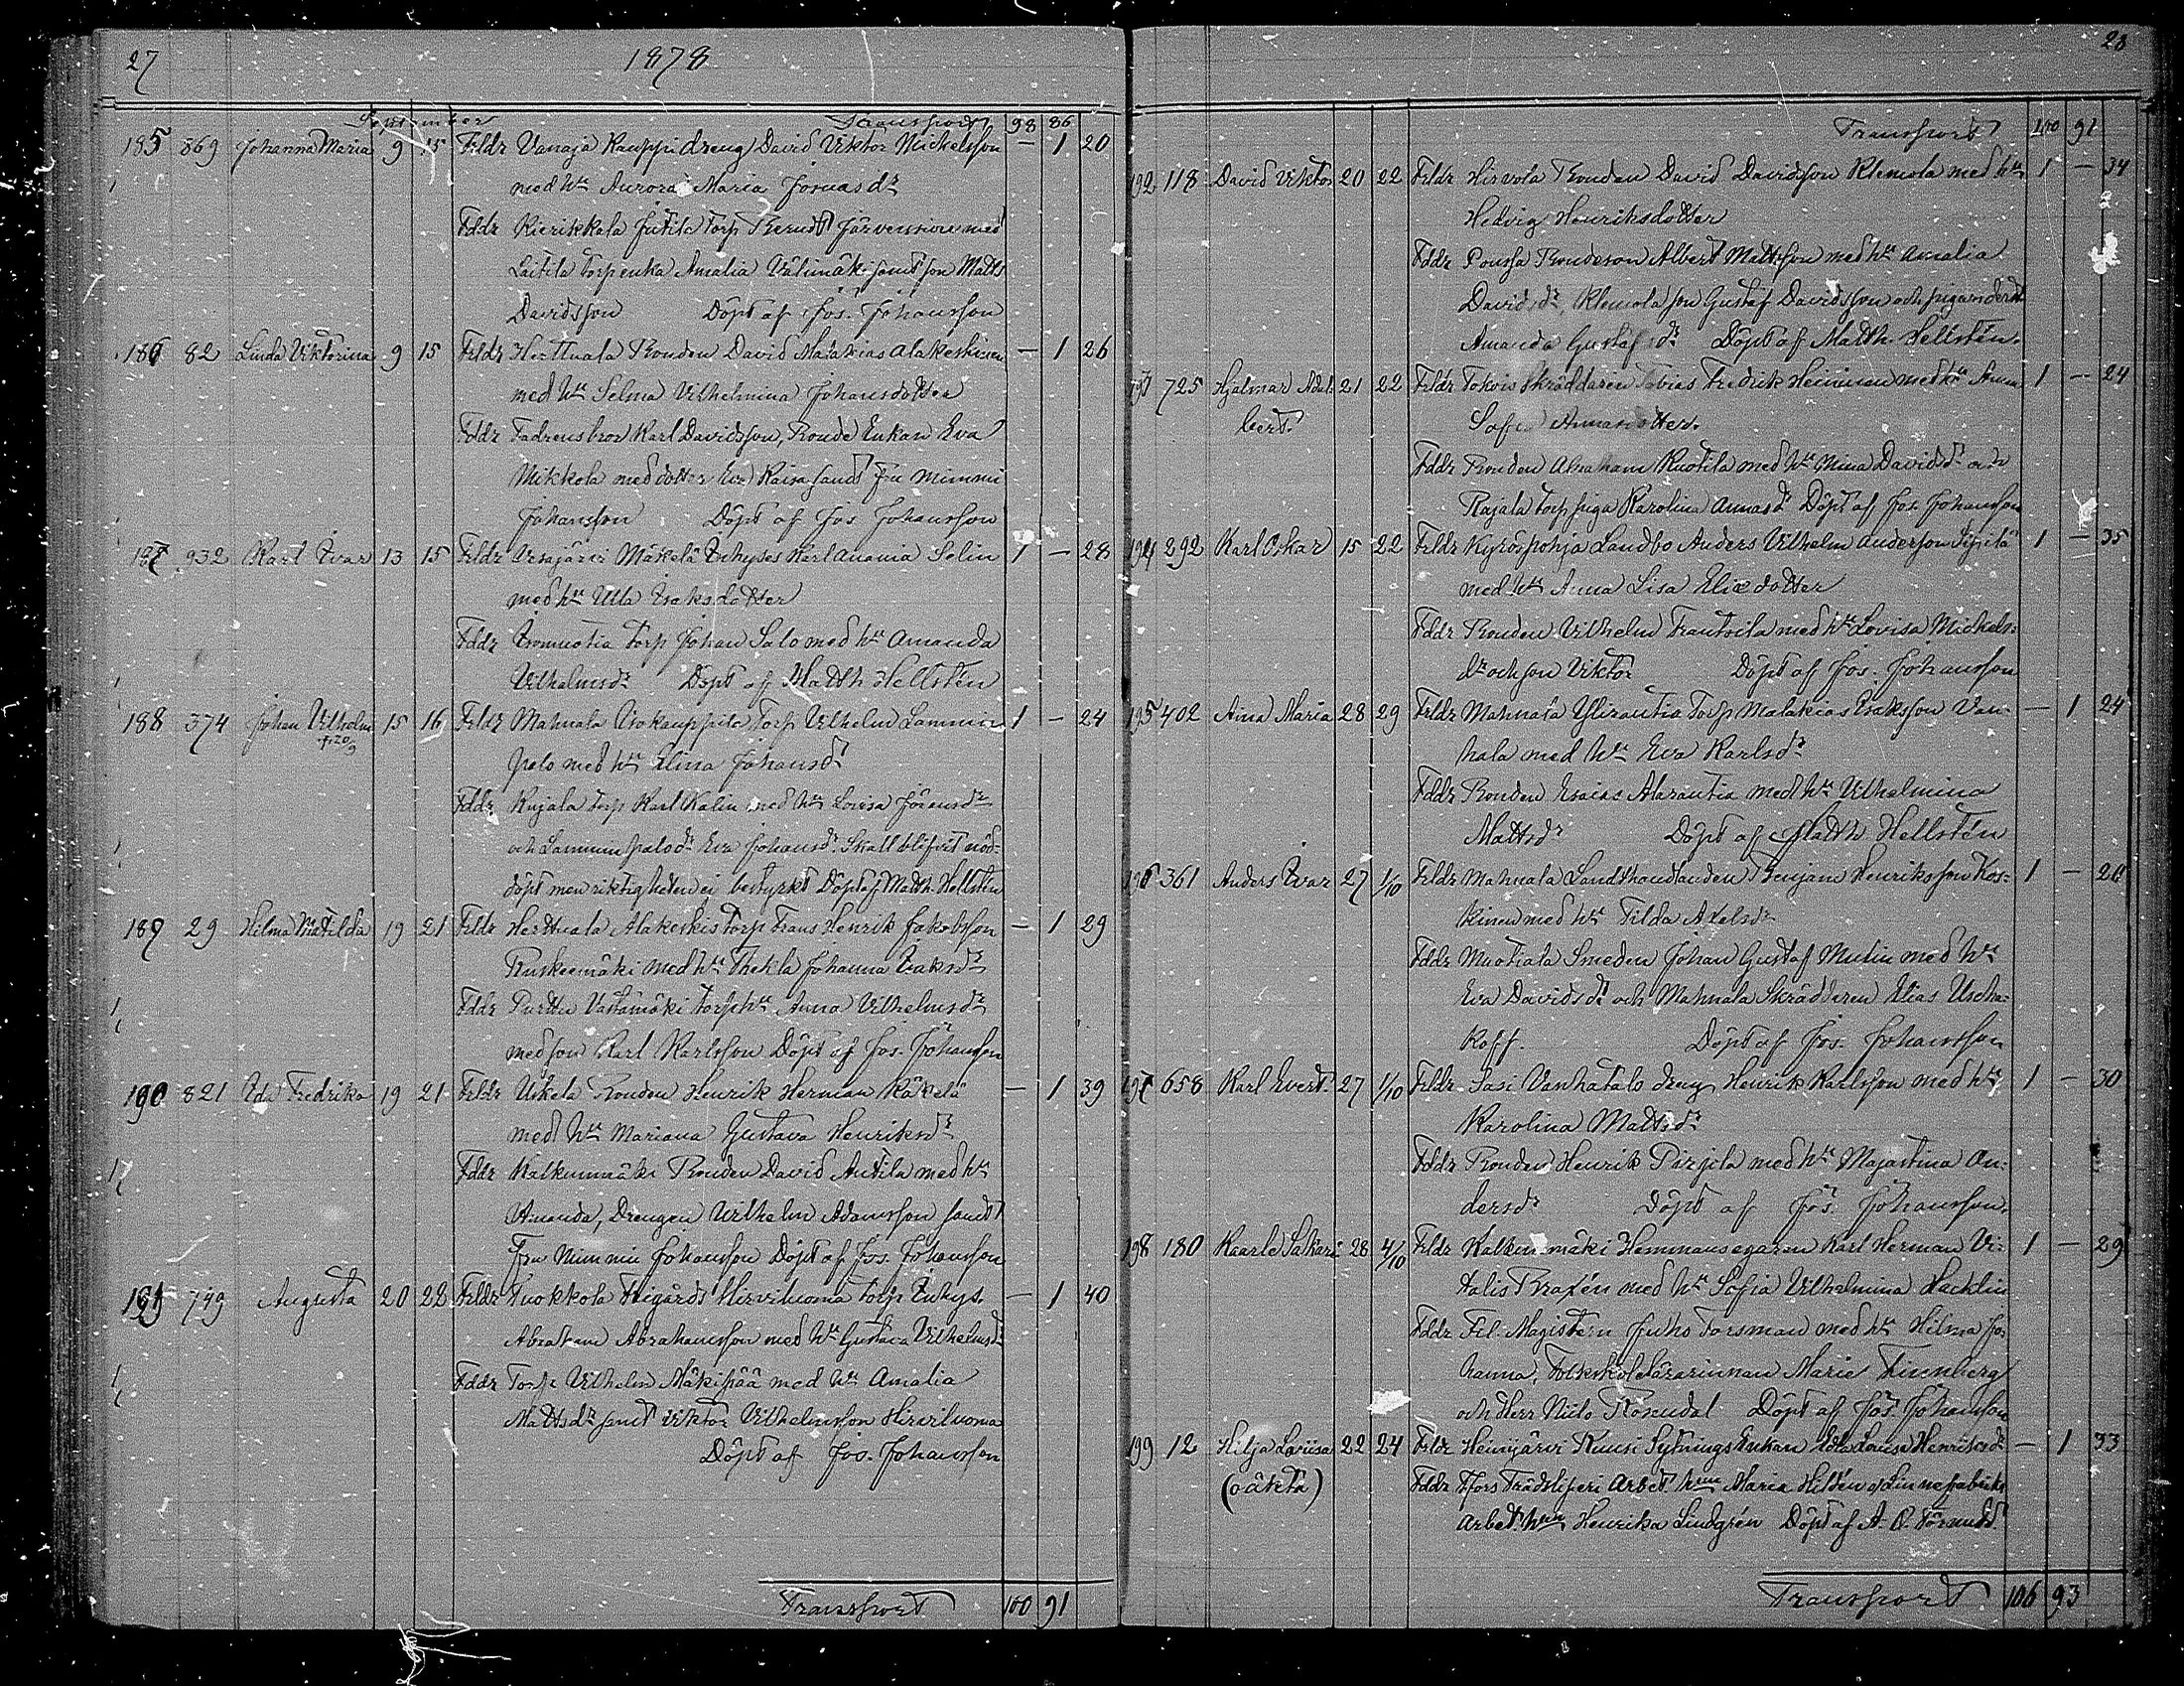 27
1878
September Transport 98 86
185 869 Johanna Maria 9 15 Frldr Vanaja Rauppi dreng David Viktor Mickelsson — 1 20
med hu Aurora Maria Josuasdr
Fddr Kierikkala Torp Järvensivu med
Laitila Torpenka Amalia Välimäki samt son Matts
Davidsson Döpt af Jos. Johansson
186 82 Linda Viktorina 9 15 Frldr Herttuala Bonden David Malakias Alakeskinen — 1 26
med hu Selma Vilhelmina Johansdotter
Fddr Fadrensbror Karl Davidsson, Bonde Enkan Eva
Mikkola med dotter Eva Kaisa samt fru Mimmi
Johansson Döpt af Jos Johansson
187 932 Karl Ivar 13 15 Frldr Vesajärvi Mäkelä Inhyses Karl Anania Selin 1 — 28
med hu Ulla Isaksdotter
Fddr Torp Johan Salo med hu Amanda
Vilhelmsdr Döpt af Matth Hellstén
188 374 Johan Vilhelm 15 16 Frldr Mahnala Isokauppila Torp Vilhelm Lammin 1 — 24
† 20/9
palo med hu Elina Johansdr
Fddr Kujala Torp Karl Kalin med hu Lovisa Göransdr
och Lamminpalo dr Eva Johansdr. Skall blifvit nöd-
döpt men riktigheten ei bestyrkt Döpt af Matth. Hellstén
189 29 Hilma Matilda 19 21 Frldr Herttuala Alakeskis Torp Frans Henrik Jakobsson — 1 29
Ruskeemäki med hu Thekla Johanna Isaksdr
Fddr Purttu Västämäki torp hu Anna Vilhelmsdr
med son Karl Karlsson Döpt af Jos. Johansson
190 821 Ida Fredrika 19 21 Frldr Uskela Bonden Henrik Herman Käkelä — 1 39
med hu Mariana Gustava Henriksdr
Fddr Kalkunmäki Bonden David Anttila med hu
Amanda, Drengen Vilhelm Adamsson samt
Fru Mimmi Johansson Döpt af Jos. Johansson
191 749 Augusta 20 28 Frldr Tuokkola Hirviluoma Torp Inhys. — 1 40
Abraham Abrahamsson med hu Gustava Vilhelmsdr
Fddr Torp Vilhelm Mäkipää med hu Amalia
Mattsdr samt Viktor Vilhelmsson Hirviluoma
Döpt af Jos. Johansson
Transport 100 91
28
Transport 100 91
192 118 David Viktor 20 22 Frldr Hirvola Bonden David Davidsson Klemola med hu 1 — 34
Hedvig Henriksdotter
Fddr Poussa Bondeson Albert Mattsson med hu Amalia
Davidsdr, Klemola son Gustaf Davidsson och pigan
Amanda Gustafsdr Döpt af Matth. Hellstén.
193 725 Hjalmar Adal- 21 22 Frldr Tokois Skräddaren Tobias Fredrik Heininen med hu Anna 1 — 24
bert.
Sofia Annasdotter.
Fddr Bonden Abraham Kuotila med hu Mina Davidsdr och
Rajala torp piga Karolina Annasdr Döpt af Jos. Johansson
194 292 Karl Oskar 15 22 Frldr Kyröspohja Landbo Anders Vilhelm Andersson Sipilä 1 — 35
med hu Anna Lisa Eliædotter
Fddr Bonden Vilhelm Trantoila med hu Lovisa Mickels-
dr och son Viktor Döpt af Jos. Johansson
195 402 Aina Maria 28 29 Frldr Mahnala Ylirautia Torp Malakias Isaksson Van- — 1 24
hala med hu Eva Karlsdr
Fddr Bonden Esaias Alarautia med hu Vilhelmina
Mattsdr Döpt af Matth Hellstén
196 361 Anders Ivar 27 1/10 Frldr Mahnala Landthandlanden Benjam Henriksson Kos- 1 — 28
kinen med hu Tilda Axelsdr
Fddr Muotiala Smeden Johan Gustaf Mutin med hu
Eva Davidsdr och Mahnala Skräddaren Elias Uscha-
koff. Döpt af Jos. Johansson
197 658 Karl Evert. 27 1/10 Frldr Sasi Vanhatalo dreng Henrik Karlsson med hu 1 — 30
Karolina Mattsdr
Fddr Bonden Henrik Pirjola med hu Majastina An-
dersdr Döpt af Jos. Johansson.
198 180 Kaarle Sakari 28 4/10 Frldr Kalkunmäki Hemmansegaren Karl Herman Vi- 1 — 29
talis Braxén med hu Sofia Vilhelmina Hacklin
Fddr Fil. Magistern Juho Forsman med hu Hilma Jo-
hanna, Folkskolelärarinnan Marie Finnberg
och Herr Niilo Rosendal Döpt af Jos. Johansson
199 12 Hilja Loviisa 22 24 Frldr Heinijärvi Kuusi Sytnings Enkan Edla Lovisa Henriksdr — 1 33
(oäkta)
Fddr Hfors Trädsliperi Arbet. hun Maria Hildén o Linnefabriks
Arbet. hun Henrika Lindgrén Döpt af A. O. Törnudd.
Transport 106 93